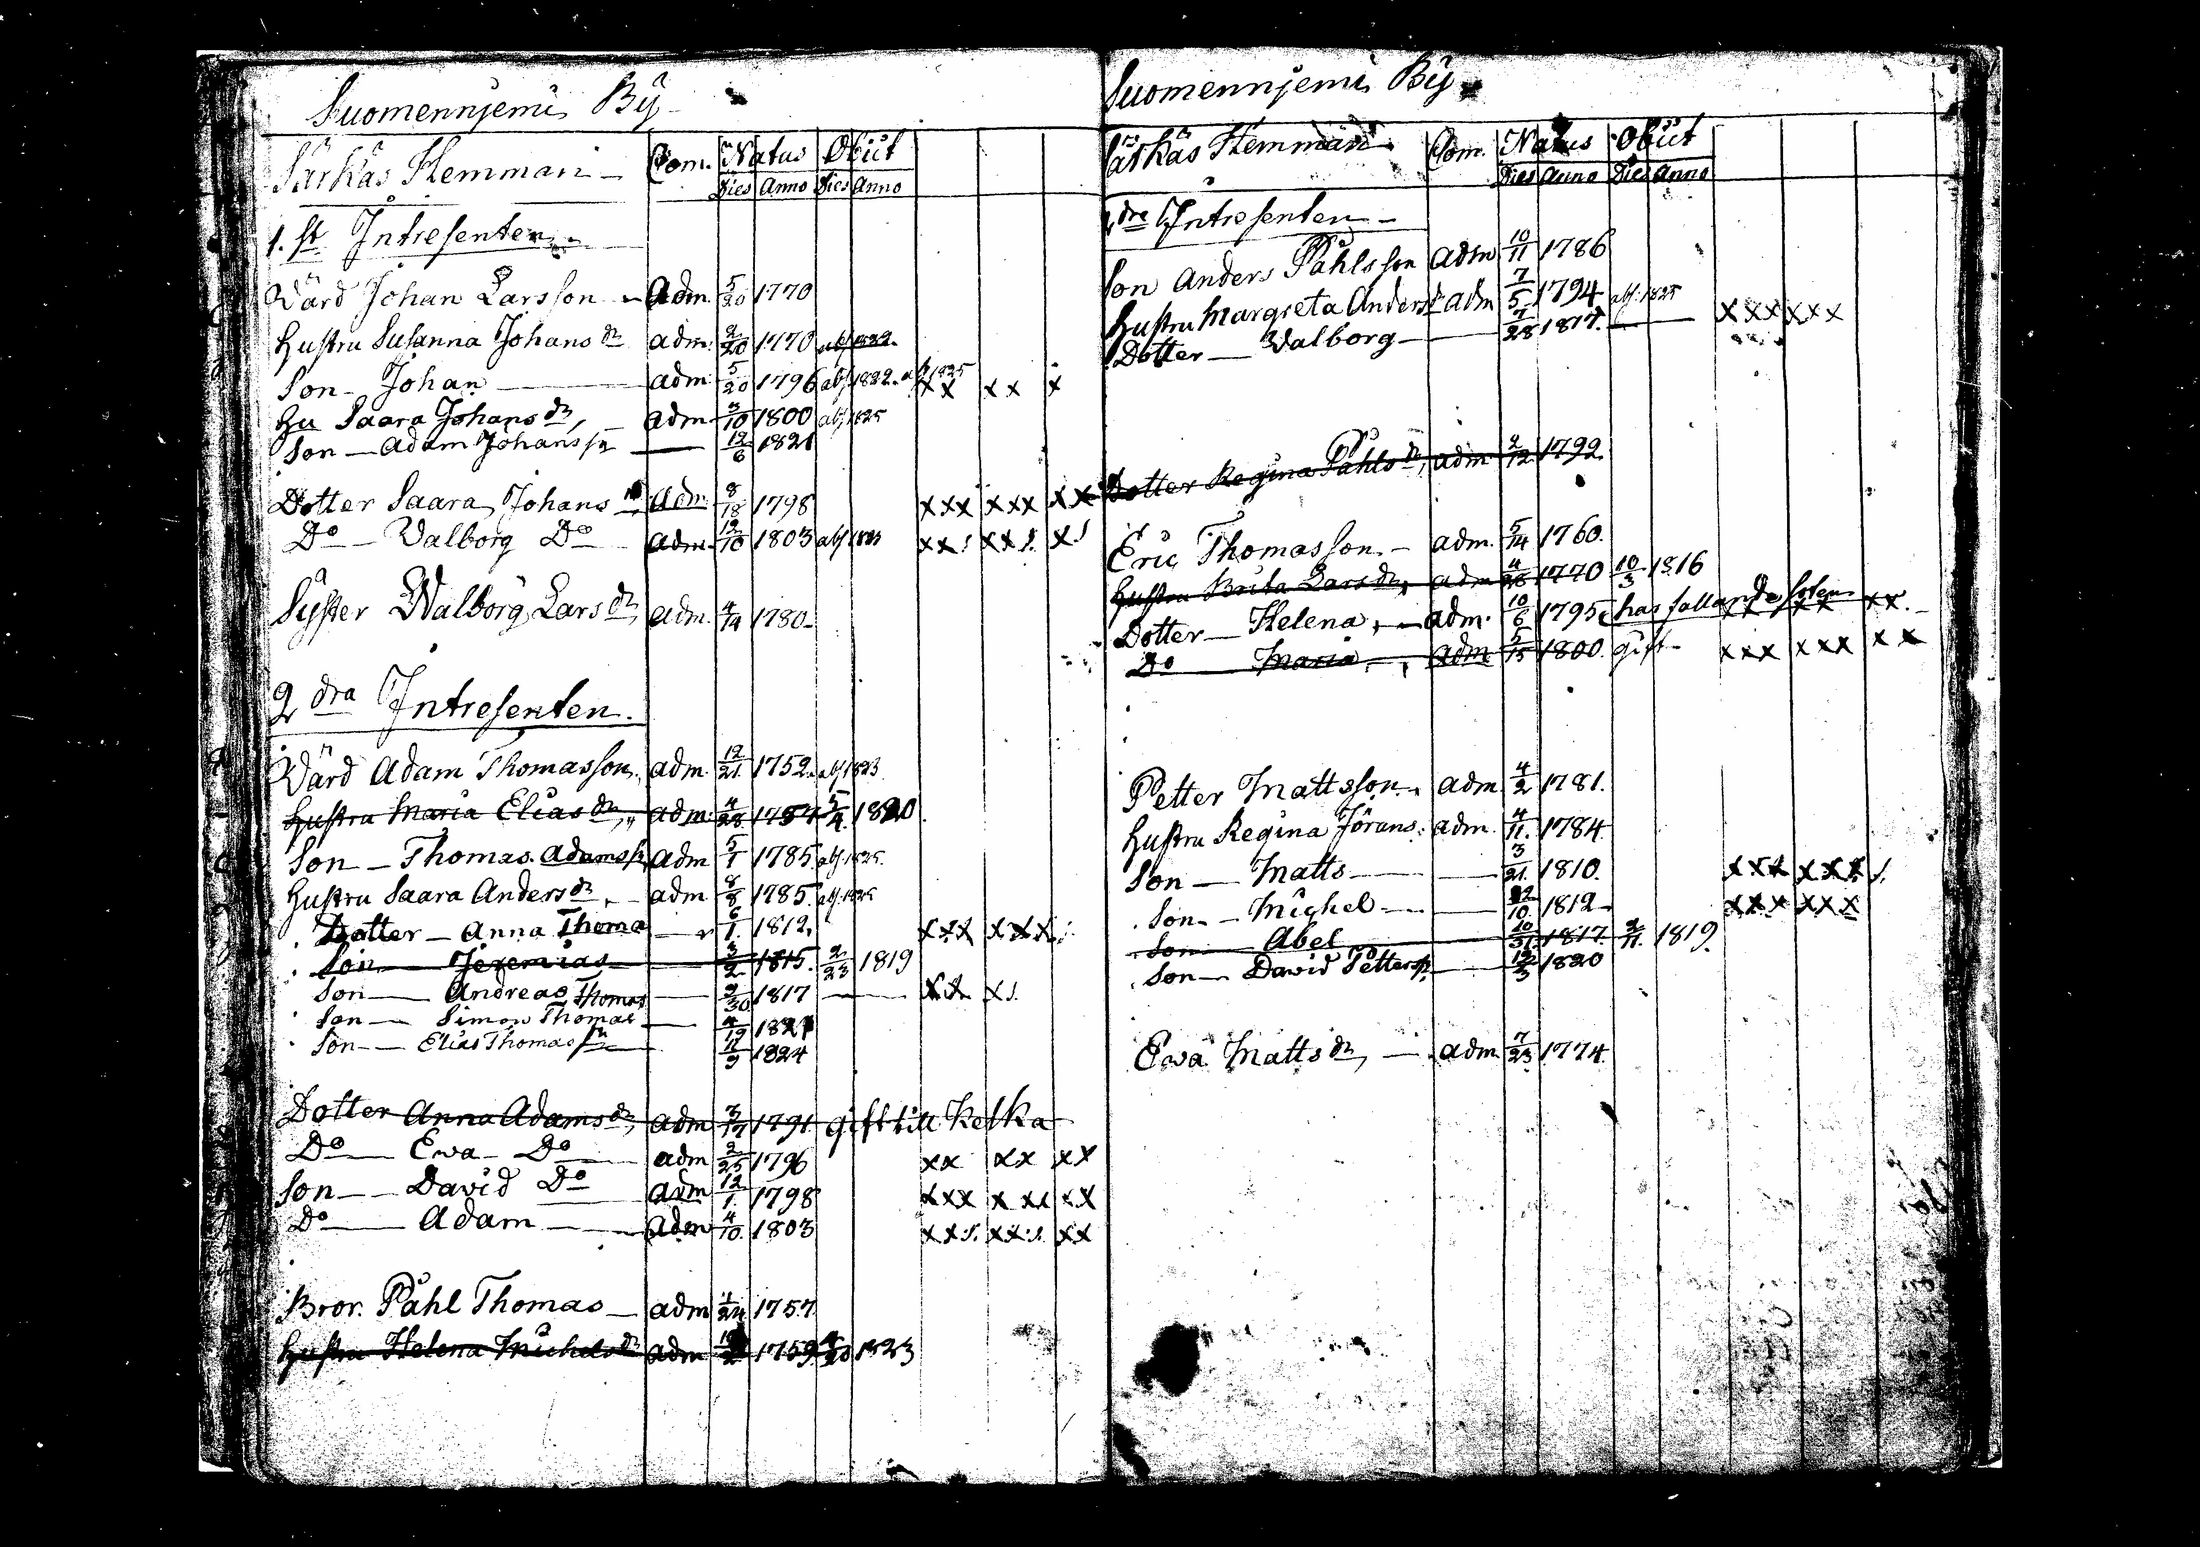 Suomennjemi By
Särkäs Hemman
Com. Natus Obiit
Dies Anno Dies Anno
1.st Intresenten
Värd Johan Larsson adm. 5/20 1770
Hustru Susanna Johans dr adm. 2/20 1770 abs 1822.
Son Johan adm 5/20 1796 abs 1822. abs 1825 xx xx x
Hu Saara Johans dr adm 3/10 1800 abs 1825
Son Adam Johanss 12/6 1821
Dotter Saara Johans dr adm. 8/18 1798 xxx xxx xx
Do Valborg Do adm. 12/10 1803 abs xx xx x
Syster Walborg Lars dr adm. 4/14 1780
2 dra Intresenten.
Värd Adam Thomasson adm. 12/21 1752. abs 1823
Hustru Maria Elias dr adm. 4/28 1754 5/4 1820
Son Thomas Adamss adm 5/1 1785 abs 1825.
Hustru Saara Anders dr adm 8/8 1785 abs 1825
Dotter Anna Thoma 6/1 1812, xxx xxx
Son Jeremias 3/2 1815. 2/23 1819
Son Andreas Thomas 9/30 1817 xx x
Son Simon Thomas 4/19 1821
Son Elias Thomas 11/9 1824
Dotter Anna Adams dr adm 3/17 1791 gift till Kelka
Do Ewa Do adm 2/25 1796 xx xx xx
Son David Do adm 12/1 1798 xxx x xx xx
Do Adam adm 4/10. 1803 xx xx xx
Bror. Påhl Thomas adm 1/24 1757
Hustru Helena Michels dr adm 1759 1823
Suomennjemi By
Särkäs Hemman
Com. Natus Obiit
Dies Anno Dies Anno
dra Intresenten
Son Anders Påhlsson adm 10/11 1786
Hustru Margreta Anders dr adm 7/5 1794 abs 1825
Dotter Valborg 7/28 1817. xxx xxx
Dotter Regina Påhls dr, adm 2/12 1792.
Eric Thomasson adm. 5/14 1760.
Hustru Brita Lars dr, adm 4/26 1770 10/3 1816
Dotter Helena, adm. 10/6 1795 har fallande soten xx xx xx.
Do Maria adm 5/15 1800. gift xxx xxx xx
Petter Mattsson adm 4/2 1781.
Hustru Regina Jörans. adm. 4/11. 1784
Son Matts 3/21. 1810. xxx xxx
Son Michel 10. 1812 xxx xxx
Son Abel 10/31. 1817. 2/11. 1819.
Son David Petters 12/3 1820
Ewa Matts dr, adm 7/23 1774